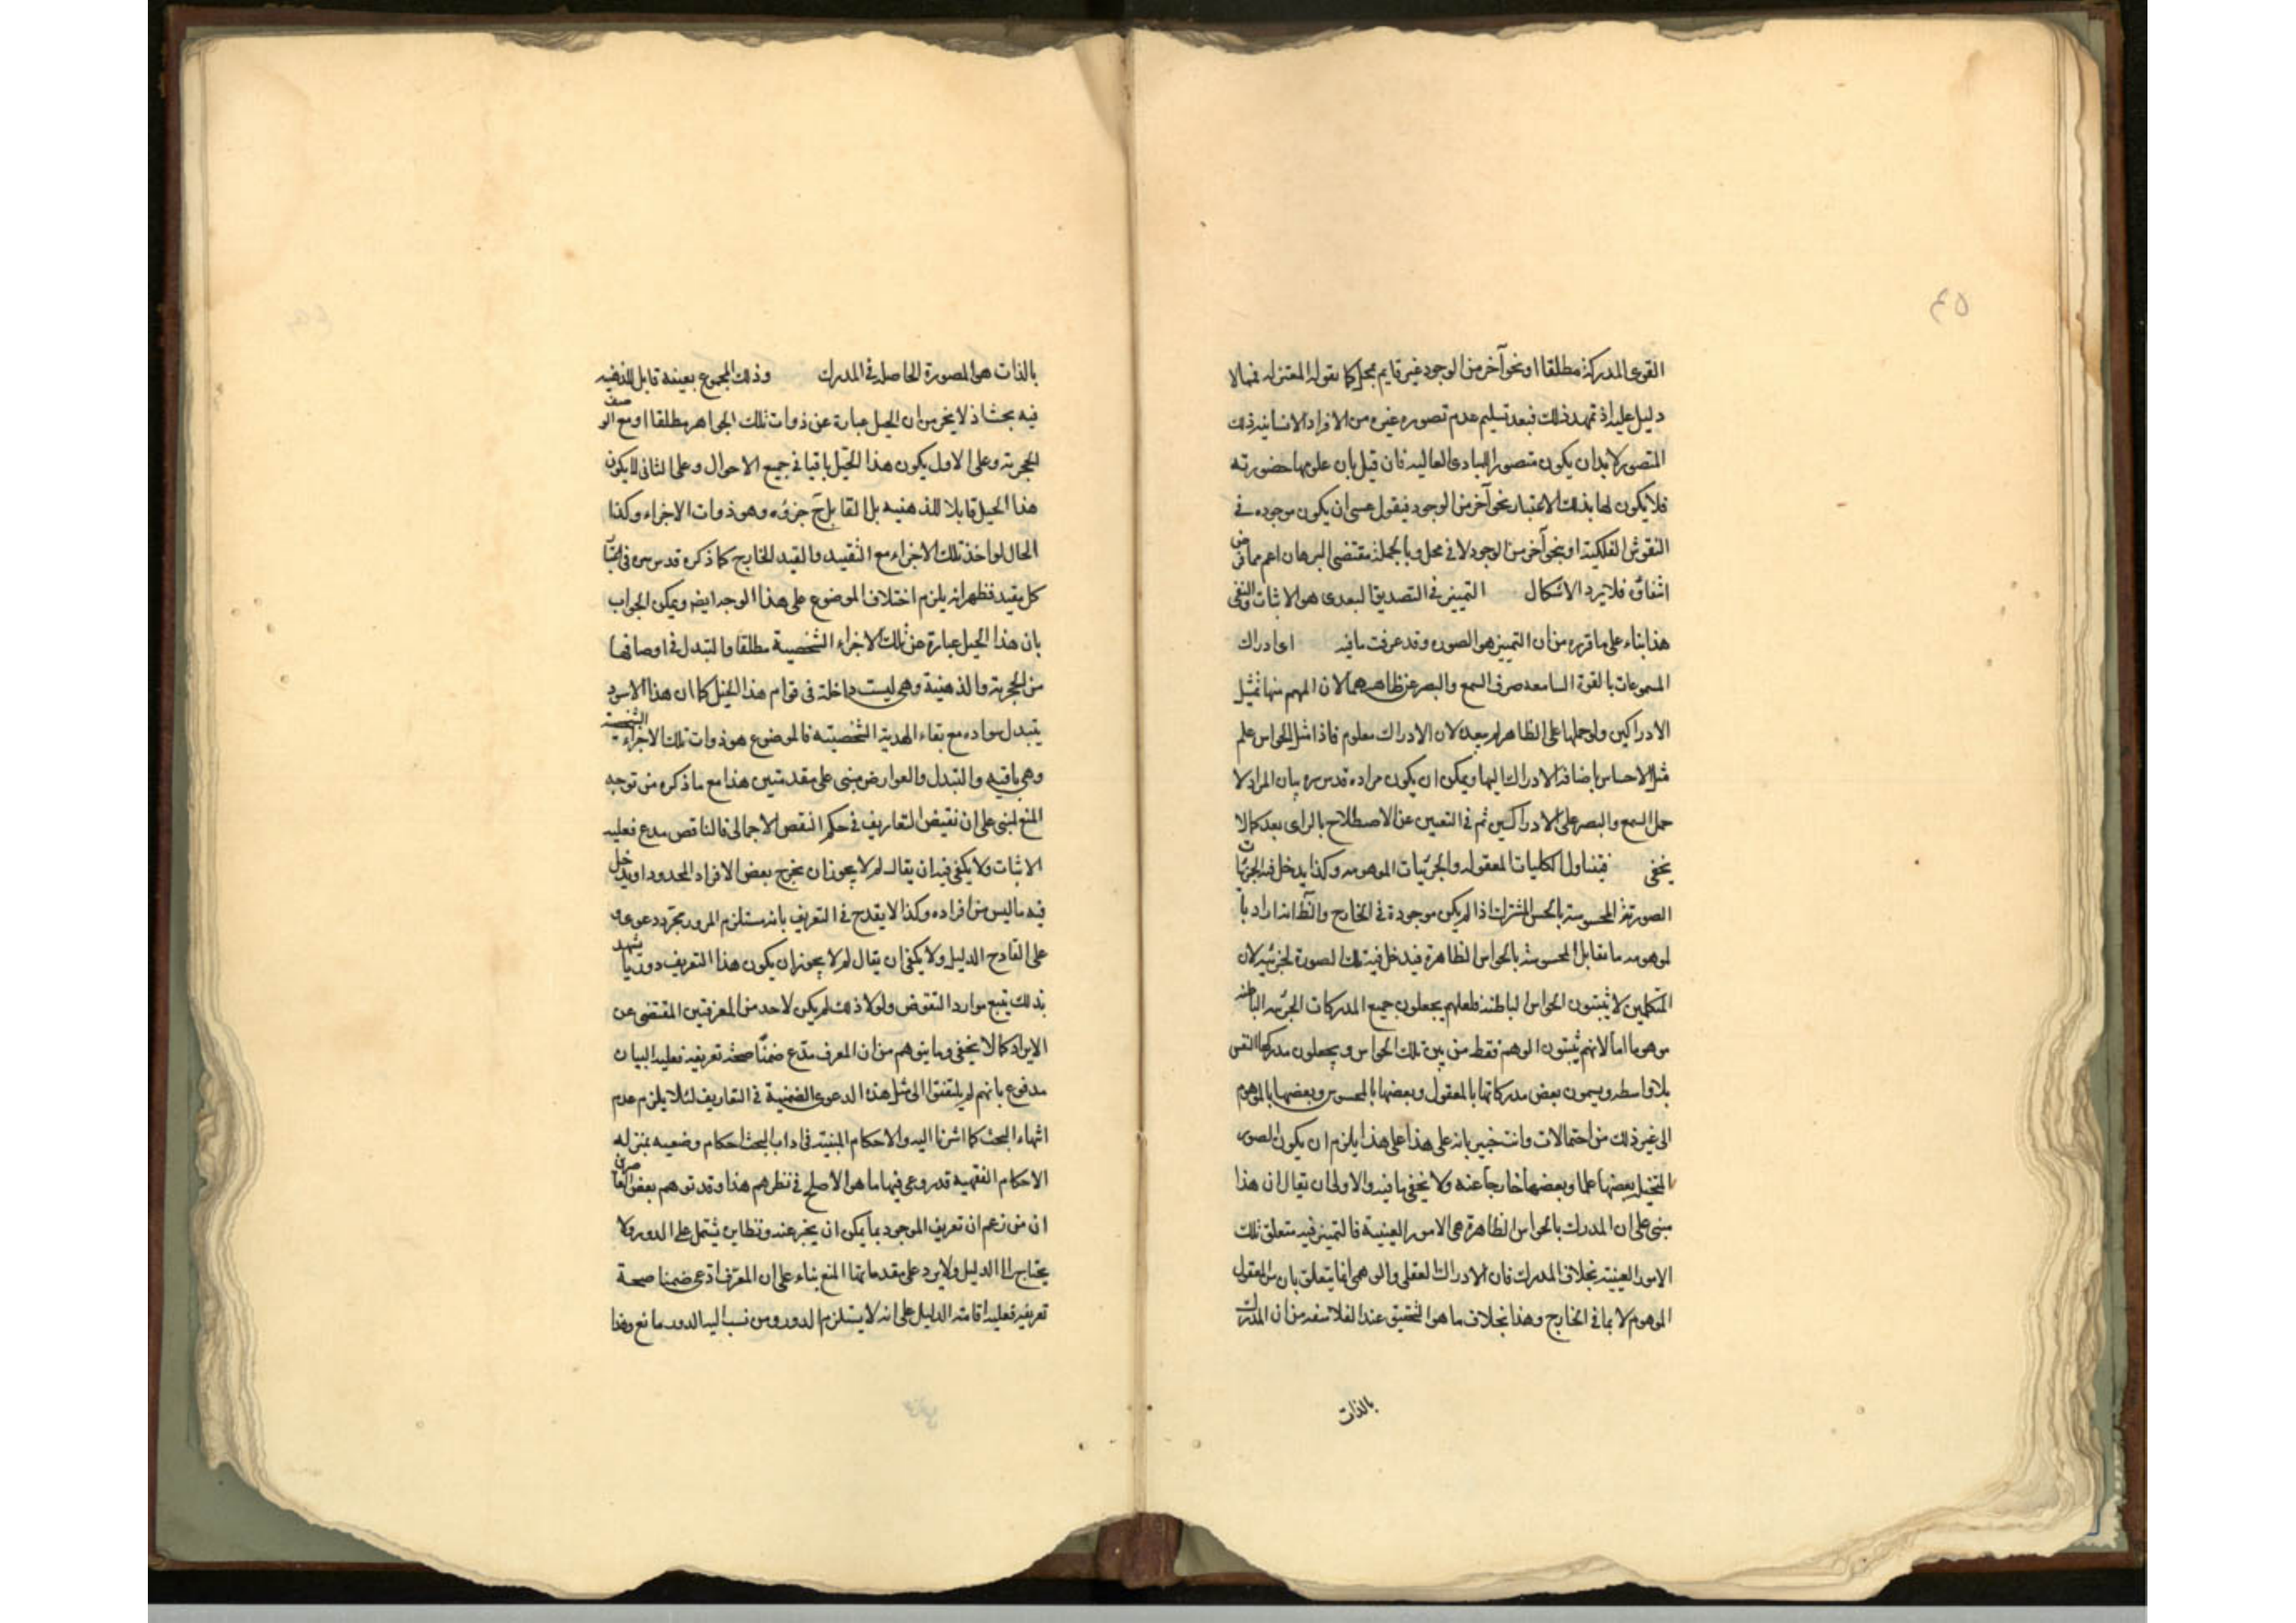 ٤٥
القوى المدركة مطلقا او نحو آخر من الوجود غير قايم بمحل كما يقوله المعتزله فمما لا
دليل عليه اذ تمهد ذلك فبعد تسليم عدم تصوره غيره من الافراد الانسانيه ذلك
المتصور لا بد ان يكون متصور المبادى العاليه فان قيل بان علومها حضوريه
فلا يكون لها بذلك الاعتبار نحو آخر من الوجود فيقول عسى ان يكون موجوده في
النقوش الفلكية او بنحو آخر من الوجود لا في محل وبالجملة مقتضى البرهان اعم مما فى
اتفاق فلا يرد الاشكال التمييز في التصديق البعدى هو الاثبات والنفى
هذا بناء على ما قرره من ان التمييز هو الصوره وقد عرفت ما فيه اى ادراك
المسموعات بالقوة السامعه صرف السمع والبصر عن ظاهرهما لان المهم منها تمثيل
الادراكين ولو حملها على الظاهر لم يبعد لان الادراك معلوم فاذا مثل الحواس علم
مثل الاحساس باضافة الادراك اليها ويمكن ان يكون مراده قدس سره بيان المراد لا
حمل السمع والبصر على الادراكين ثم في التعيين عن الاصطلاح بالراى بعد كما لا
يخفى فيتناول الكليات المعقوله والجزئيات الموهومه وكذا يدخل فيه الجزئيات
الصور المحسوسة بالحس المشترك اذا لم يكن موجودة في الخارج والظ انه اراد با
لموهومه ما يقابل المحسوسة بالحواس الظاهرة فيدخل فيه تلك الصورة الجزئيه لان
المتكلمين لا يثبتون الحواس الباطنه فلعلهم يجعلون جميع المدركات الجزئيه الباطنه
موهوما اما لانهم يثبتون الوهم فقط من بين تلك الحواس ويجعلون مدركها النفس
بلا واسطه ويسمون بعض مدركاتها بالمعقول وبعضها بالمحسوس وبعضها بالموهوم
الى غير ذلك من احتمالات وانت خبير بانه على هذا على هذا يلزم ان يكون الصور
المتخيله بعضها علما وبعضها خارجا عنه ولا يخفى ما فيه والاولى ان يقال ان هذا
مبنى على ان المدرك بالحواس الظاهرة هى الامور العينية فالتمييز فيه متعلق تلك
الامور العينية بخلاف المدرك فان الادراك العقلى والوهمى انما يتعلق بان من المعقول
الموهوم لا بما في الخارج وهذا بخلاف ما هو التحقيق عند الفلاسفه من ان المدرك
بالذات
بالذات هو الصورة الحاصله في المدرك وذلك المجموع بعينه قابل للذهنيه
فيه بحث اذ لا يخ من ان الجبل عبارة عن ذوات تلك الجواهر مطلقا او مع الوصف
الحجرية وعلى الاول يكون هذا الجبل باقيا في جميع الاحوال وعلى الثانى لا يكون
هذا الجبل قابلا للذهنيه بل القابل ح جزؤه وهو ذوات الاجزاء وكذا
الحال لو اخذ تلك الاجزاء مع التقييد والقيد للخارج كما ذكره قدس سره فى
كل مقيد فظهر انه يلزم اختلاف الموضوع على هذا الوجه ايضا ويمكن الجواب
بان هذا الجبل عبارة عن تلك الاجزاء الشخصية مطلقا والتبدل في اوصافها
من الحجرية والذهنية وهى ليست داخلة فى قوام هذا الجبل كما ان هذا الاسود
يتبدل سواده مع بقاء الهذية الشخصيته فالموضوع هو ذوات تلك الاجزاء الشخصية
وهى باقيه والتبدل والعوارض مبنى على مقدمتين هذا مع ما ذكره من توجه
المنع لمبنى على ان نقيض التعاريف في حكم النقض الاجمالى فالناقص مدع فعليه
الاثبات ولا يكفى فيه ان يقال لم لا يجوز ان يخرج بعض الافراد المحدود او يدخل
فيه ما ليس من افراده وكذا لا يقدح في التعريف بانه مستلزم الدور بمجرد دعوى
على القادح الدليل ولا يكفى ان يقال لم لا يجوز ان يكون هذا التعريف دوريا يشهد
بذلك تتبع موارد النقوض ولولا ذلك لم يكن لاحد من المعرفين المقتضى عن
الايراد كما لا يخفى وما يتوهم من ان المعرف مدّع ضمنا صحة تعريفه فعليه البيان
مدفوع بانهم لم يلتفتوا الى مثل هذه الدعوى الضمنية في التعاريف لئلا يلزم عدم
انتهاء البحث كما اشرنا اليه والاحكام المبنية فى اداب البحث احكام وضعيه بمنزله
الاحكام الفقهية قد روعى فيها ما هو الاصلح في نظرهم هذا وقد توهم بعض
ان من زعم ان تعريف الموجود بما يمكن ان يخبر عنه ونظايره يشتمل على الدور ولا
يحتاج الى الدليل ولا يرد على مقدماتها المنع بناء على ان المعرّف ادعى ضمنا صحة
تعريفه فعليه اقامة الدليل على انه لا يستلزم الدور ومن نسب اليه الدور مانع وهذا